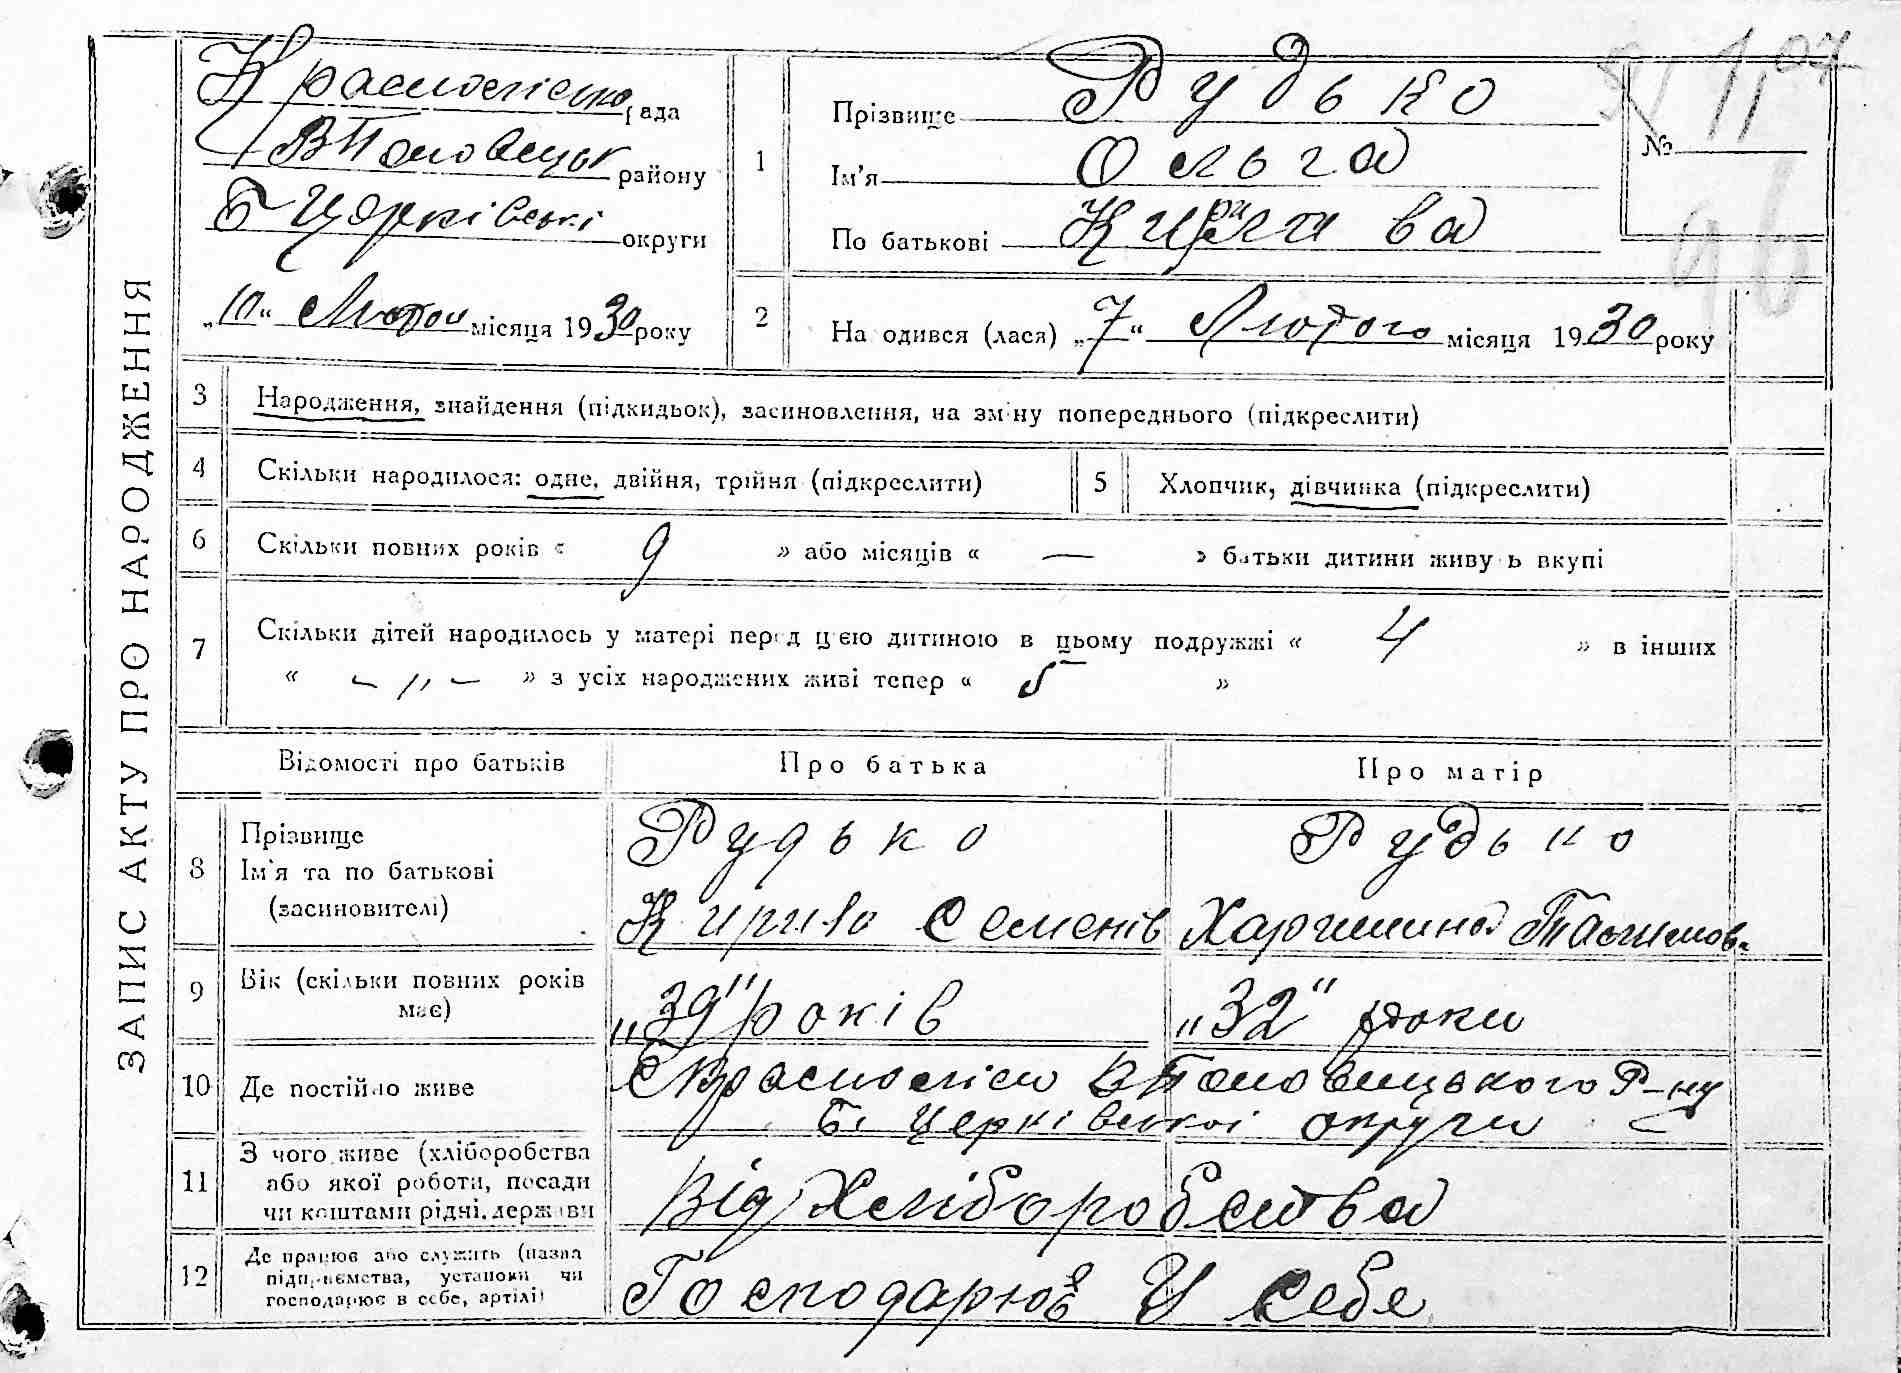 ЗАПИС АКТУ ПРО НАРОДЖЕННЯ
Краснолісько рада
ВПоловецьк району
Б Церківські округи
„10“ Лютого місяця 1930 року
1
Прізвище Рудько
Ім'я Ольга
По батькові
№
2
На одився (лася) „7“ Лютого місяця 1930 року
3
Народження, знайдення (підкидьок), засиновлення, на зміну попереднього (підкреслити)
4
Скільки народилося: одне, двійня, трійня (підкреслити)
5
Хлопчик, дівчинка (підкреслити)
6
Скільки повних років « 9 » або місяців « — » батьки дитини живу ь вкупі
7
Скільки дітей народилось у матері перед цією дитиною в цьому подружжі « 4 » в інших
« – „ – » з усіх народжених живі тепер « 5 »
Відомості про батьків
Про батька
Про матір
8
Прізвище
Ім'я та по батькові
(засиновителі)
Рудько
Кирило Семенів
Рудько
Харитина
9
Вік (скільки повних років
має)
„39" років
„32" роки
10
Де постійно живе
С Краснолісы ВПоловецького Р-ну
Б. Церківської округи
11
З чого живе (хліборобства
або якої роботи, посади
чи коштами рідні, держави
Від Хліборобства
12
Де працює або служить (назва
підприємства, установи чи
господарює в себе, артілі)
Господарює У себе